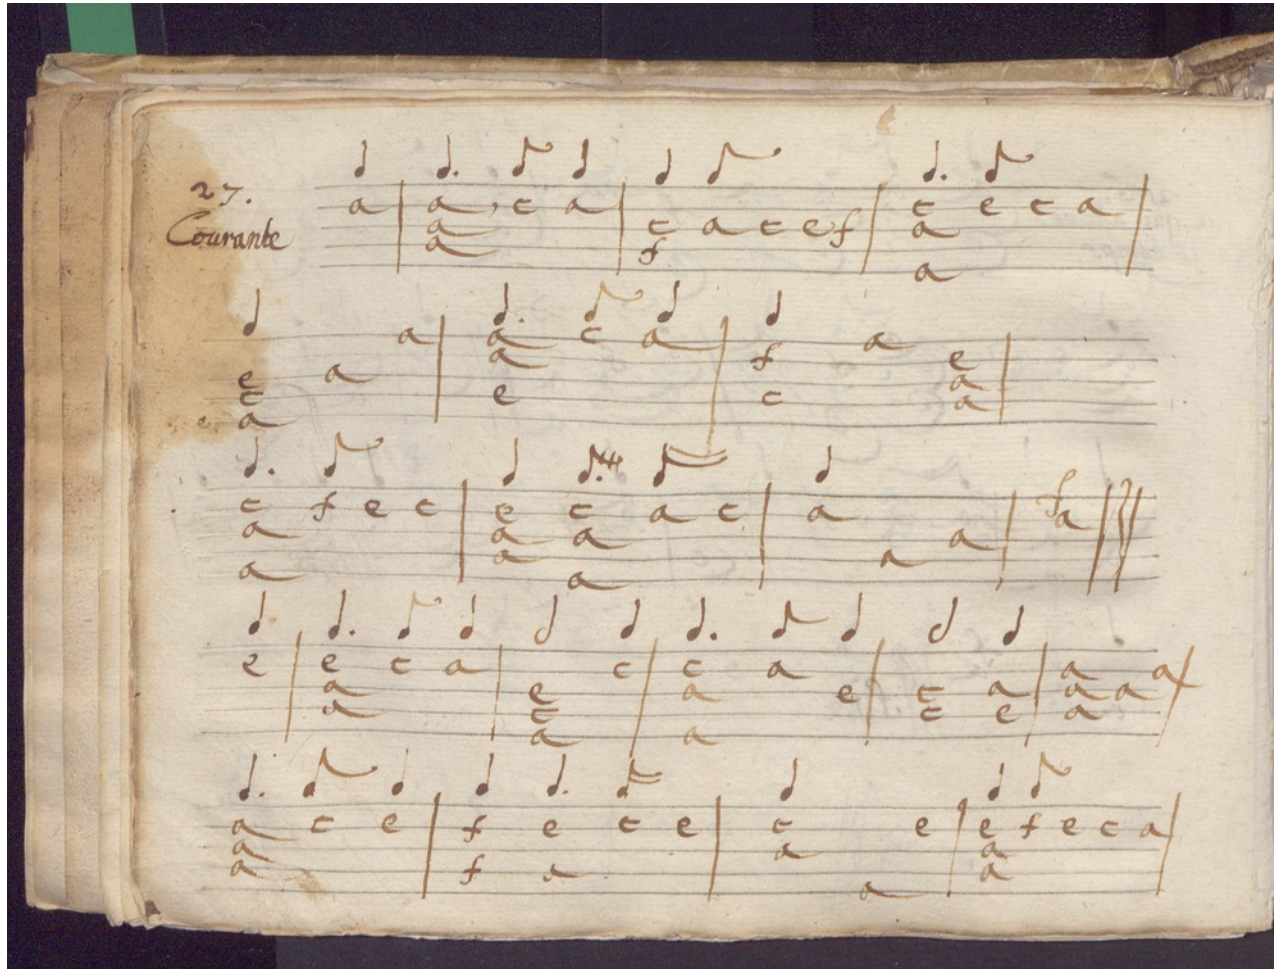 27.
Courante
a a c a c a c e f c e c a
a a a
a f a
e a a a c a f a e
c a a
a e c a
c f e c e c a c a a a f a
a a a
a a a
e e c a e c c a e c a a a a
a a c a c e a
a a a
a c e f e c e c e e f e c a
a f a a a a
a a